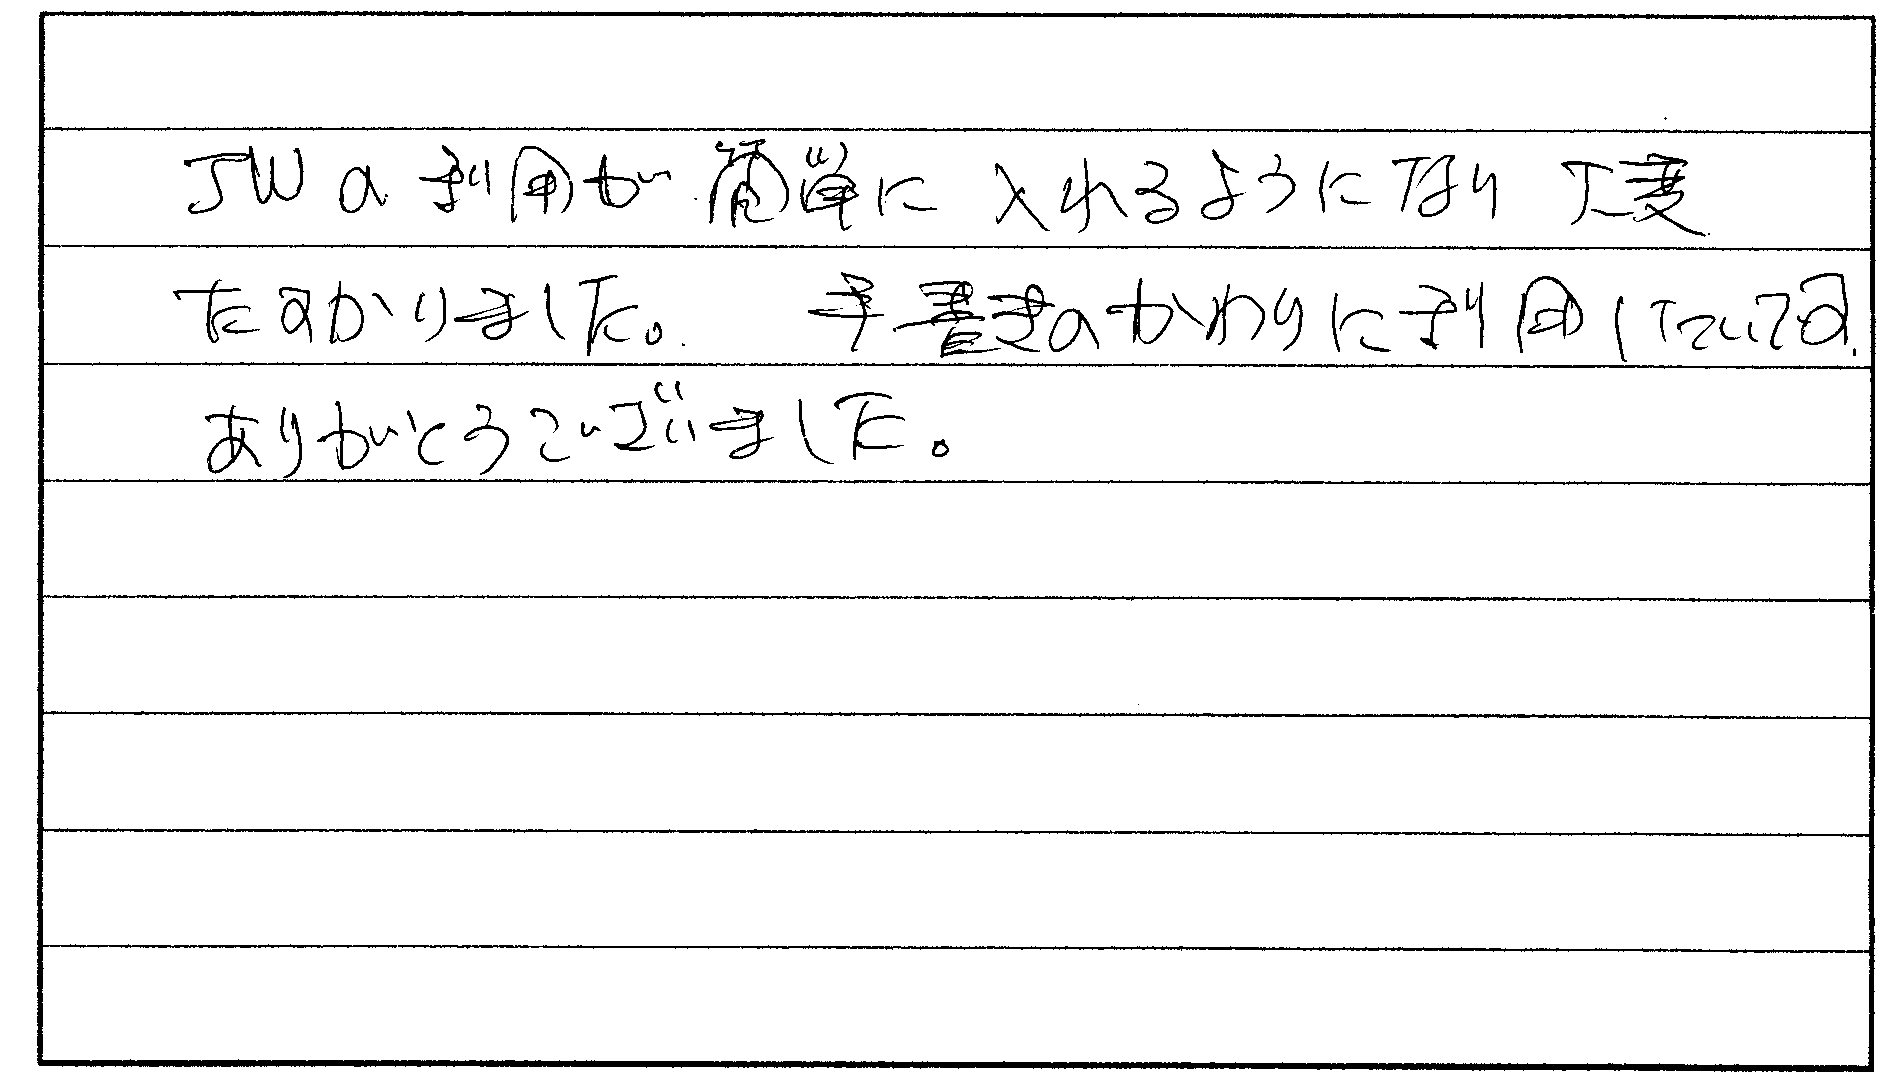 JWの利用が簡単に入れるようになり丁度
たすかりました。手書きのかわりに利用していてます.
ありがとうございました。